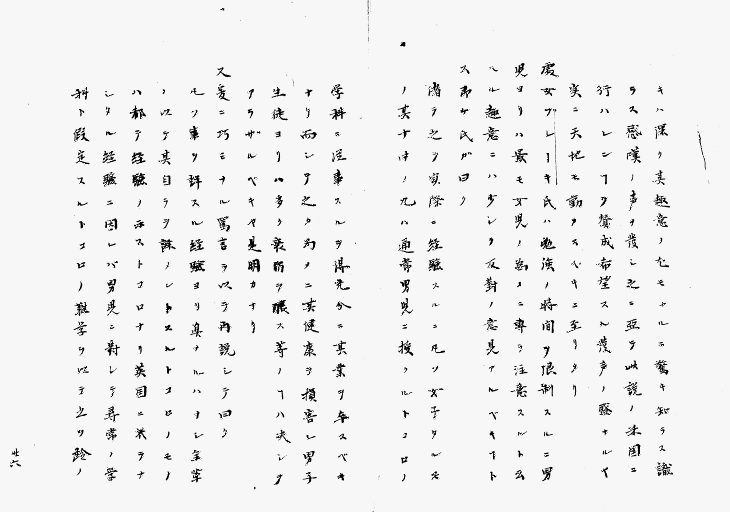 キハ深ク其趣意ノ尤モナルニ驚キ知ラス識
ラス感嘆ノ声ヲ発シ之ニ亜テ此説ノ米国ニ
行ハレンヿヲ賛成希望スル発声ノ騒ナルヤ
実ニ天地モ動カスベキニ至リタリ
処女ブレーキ氏ハ勉強ノ時間ヲ限制スルニ男
児ヨリハ最モ女児ノ為メニ専ラ注意スルト云
ヘル趣意ニハ少シク反対ノ意見アルベキナト
ス弟女氏ガ曰ク
済テ之ヲ実際ニ経験スルニ凡ソ女子タルモ
ノ其十中ノ九ハ通常男児ニ授クルトコロノ
学科ニ従事スルヲ得充分ニ其業ヲ卒スベキ
ナリ而シテ之カ為メニ其健康ヲ損害シ男子
生徒ヨリハ多ク衰弱ヲ醸ス等ノヿハ決シテ
アラザルベキヤ是明カナリ
又爰ニ巧ミナル罵言ヲ以テ再説シテ曰ク
凡ソ事ヲ評スル経験ヨリ真ナルハナシ全章
ノ以テ其自ラヲ誅ノントスルトコロノモノ
ハ都テ経験ノ示ストコロナリ英国ニ於テナ
シタル経験ニ因レバ男児ニ対シテ尋常ノ学
科ト仮定スルトコロノ難学ヲ以テ之ヲ齢ノ
廿六